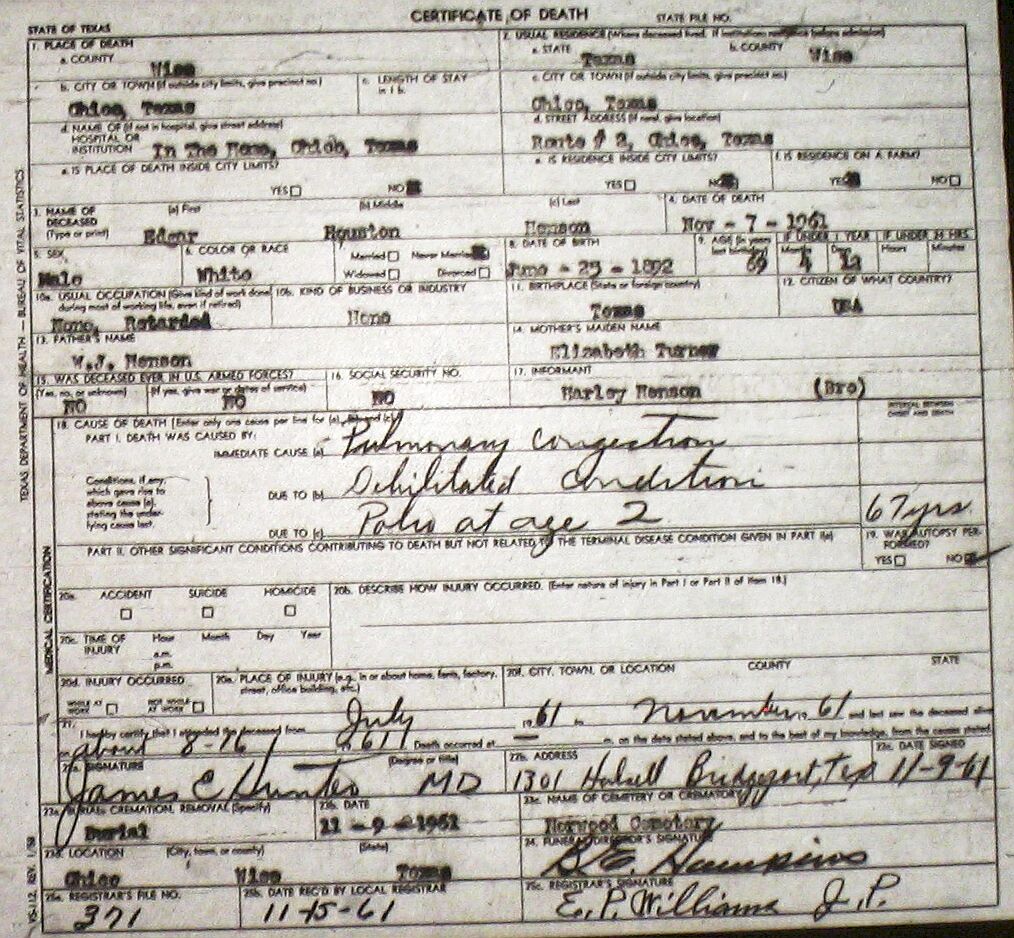 CERTIFICATE OF DEATH
STATE OF TEXAS STATE FILE NO.
1. PLACE OF DEATH
a. COUNTY
Wise
2. USUAL RESIDENCE (Where deceased lived. If institution: residence before admission)
a. STATE b. COUNTY
Texas Wise
b. CITY OR TOWN (If outside city limits, give precinct no.)
Chico, Texas
c. LENGTH OF STAY
in 1 b.
c. CITY OR TOWN (If outside city limits, give precinct no.)
Chico, Texas
d. NAME OF (If not in hospital, give street address)
HOSPITAL OR
INSTITUTION In The Home, Chico, Texas
d. STREET ADDRESS (If rural, give location)
Route # 2, Chico, Texas
e. IS PLACE OF DEATH INSIDE CITY LIMITS?
YES NO
e. IS RESIDENCE INSIDE CITY LIMITS?
YES NO
f. IS RESIDENCE ON A FARM?
YES NO
3. NAME OF
DECEASED
(Type or print)
(a) First (b) Middle (c) Last
Edgar Houston Henson
4. DATE OF DEATH
Nov - 7 - 1961
5. SEX
Male
6. COLOR OR RACE
White
7. Married Never Married
Widowed Divorced
8. DATE OF BIRTH
June - 25 - 1892
9. AGE (In years
last birthday)
69
IF UNDER 1 YEAR
Months Days
4 12
IF UNDER 24 HRS.
Hours Minutes
10a. USUAL OCCUPATION (Give kind of work done
during most of working life, even if retired)
None, Retarded
10b. KIND OF BUSINESS OR INDUSTRY
None
11. BIRTHPLACE (State or foreign country)
Texas
12. CITIZEN OF WHAT COUNTRY?
USA
13. FATHER'S NAME
W.J. Henson
14. MOTHER'S MAIDEN NAME
Elizabeth Turney
15. WAS DECEASED EVER IN U.S. ARMED FORCES?
(Yes, no, or unknown) (If yes, give war or dates of service)
NO NO
16. SOCIAL SECURITY NO.
NO
17. INFORMANT
Harley Henson (Bro)
18. CAUSE OF DEATH [Enter only one cause per line for (a), (b) and (c).]
INTERVAL BETWEEN
ONSET AND DEATH
PART I. DEATH WAS CAUSED BY:
IMMEDIATE CAUSE (a) Pulmonary congestion
Conditions, if any,
which gave rise to
above cause (a),
stating the under-
lying cause last.
DUE TO (b) Debilitated condition
DUE TO (c) Polio at age 2 67 yrs
PART II. OTHER SIGNIFICANT CONDITIONS CONTRIBUTING TO DEATH BUT NOT RELATED TO THE TERMINAL DISEASE CONDITION GIVEN IN PART I(a)
19. WAS AUTOPSY PER-
FORMED?
YES NO
MEDICAL CERTIFICATION
20a. ACCIDENT SUICIDE HOMICIDE
20b. DESCRIBE HOW INJURY OCCURRED. (Enter nature of injury in Part I or Part II of item 18.)
20c. TIME OF
INJURY
Hour Month Day Year
a.m.
p.m.
20d. INJURY OCCURRED
WHILE AT
WORK
NOT WHILE
AT WORK
20e. PLACE OF INJURY (e.g. in or about home, farm, factory,
street, office building, etc.)
20f. CITY, TOWN, OR LOCATION COUNTY STATE
21. I hereby certify that I attended the deceased from July 1961 to November 1961 and last saw the deceased alive
on about 8-16 1961 Death occurred at m. on the date stated above, and to the best of my knowledge, from the causes stated.
22a. SIGNATURE (Degree or title)
James C Hunter MD
22b. ADDRESS
1301 Halsell Bridgeport, Tex
22c. DATE SIGNED
11-9-61
23a. BURIAL, CREMATION, REMOVAL (Specify)
Burial
23b. DATE
11 - 9 - 1961
23c. NAME OF CEMETERY OR CREMATORY
Norwood Cemetery
23d. LOCATION (City, town, or county) (State)
Chico Wise Texas
24. FUNERAL DIRECTOR'S SIGNATURE
25a. REGISTRAR'S FILE NO.
371
25b. DATE REC'D BY LOCAL REGISTRAR
11-15-61
25c. REGISTRAR'S SIGNATURE
E. P. Williams J. P.
TEXAS DEPARTMENT OF HEALTH — BUREAU OF VITAL STATISTICS
VS-112 REV. 1/58